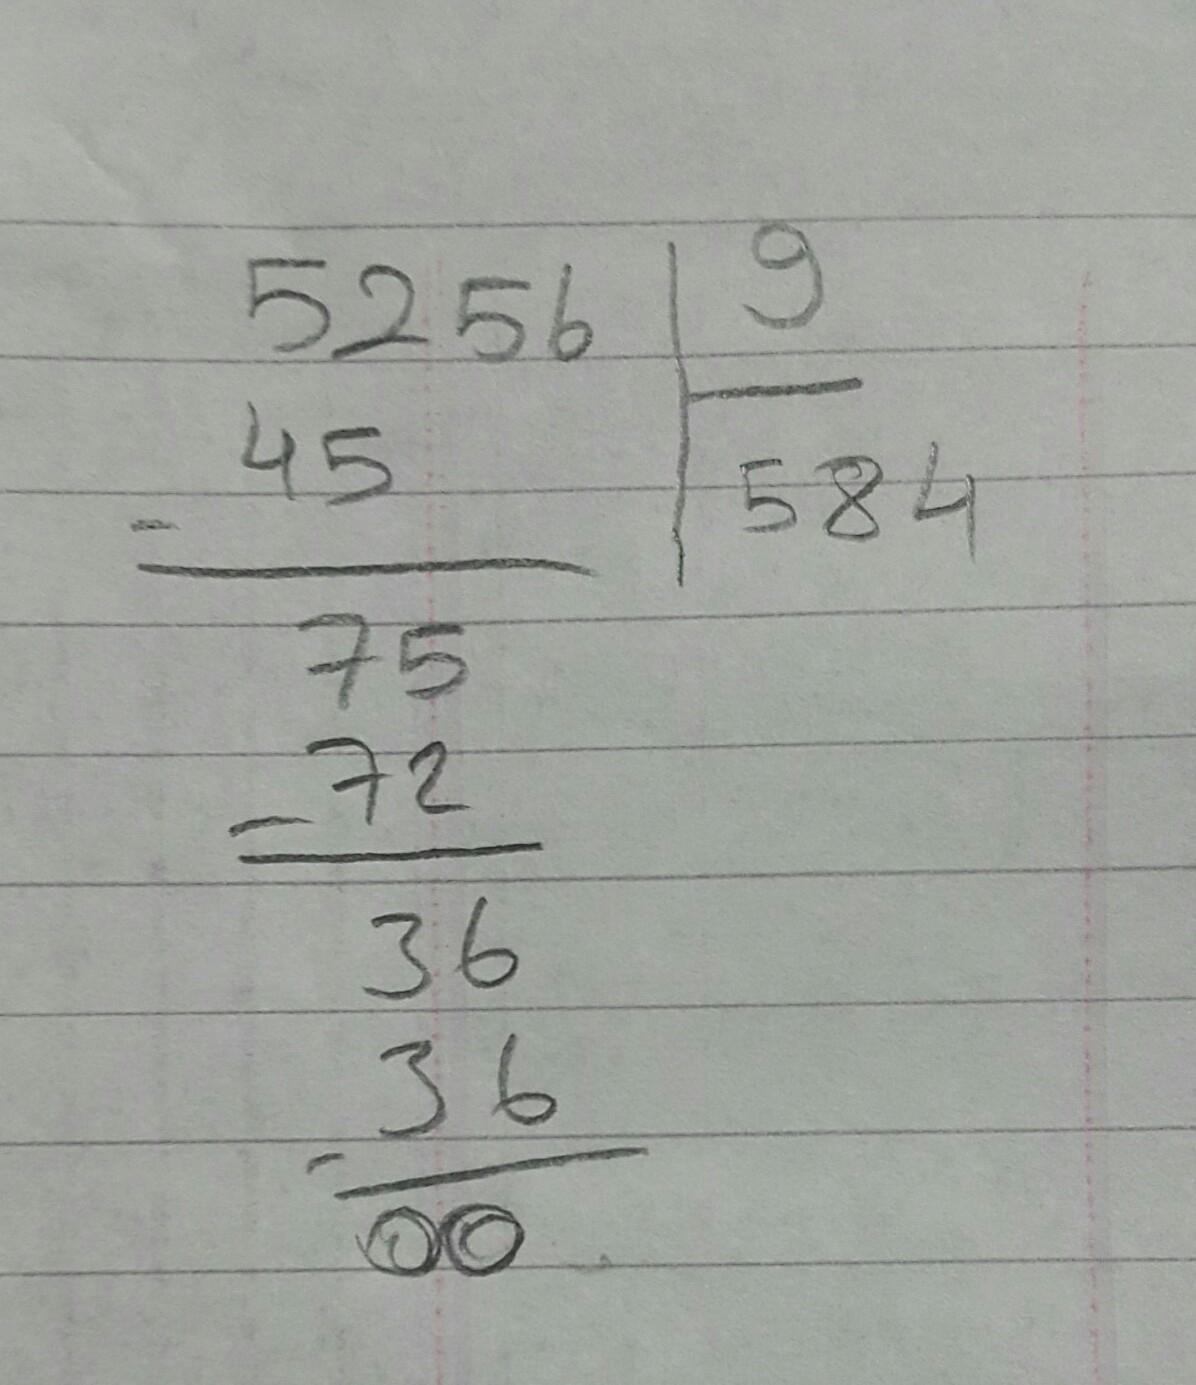 5256 | 9
- 45 584
75
- 72
36
- 36
00